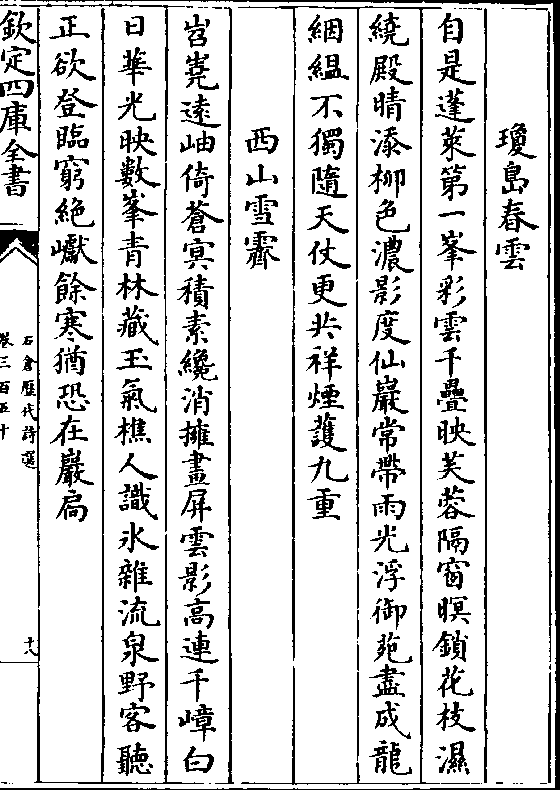 瓊島春雲
自是蓬萊第一峯彩雲千疊映芙蓉隔窗暝鎖花枝濕
繞殿晴添柳色濃影度仙巖常帶雨光浮御苑盡成龍
絪縕不獨隨天仗更共祥煙護九重
西山雪霽
岧嶤遠岫倚蒼冥積素纔消擁畫屏雲影高連千嶂白
日華光映數峯青林藏玉氣樵人識氷雜流泉野客聽
正欲登臨窮絶巘餘寒猶恐在巖扃
欽定四庫全書
石倉歷代詩選
卷三百五十
十八